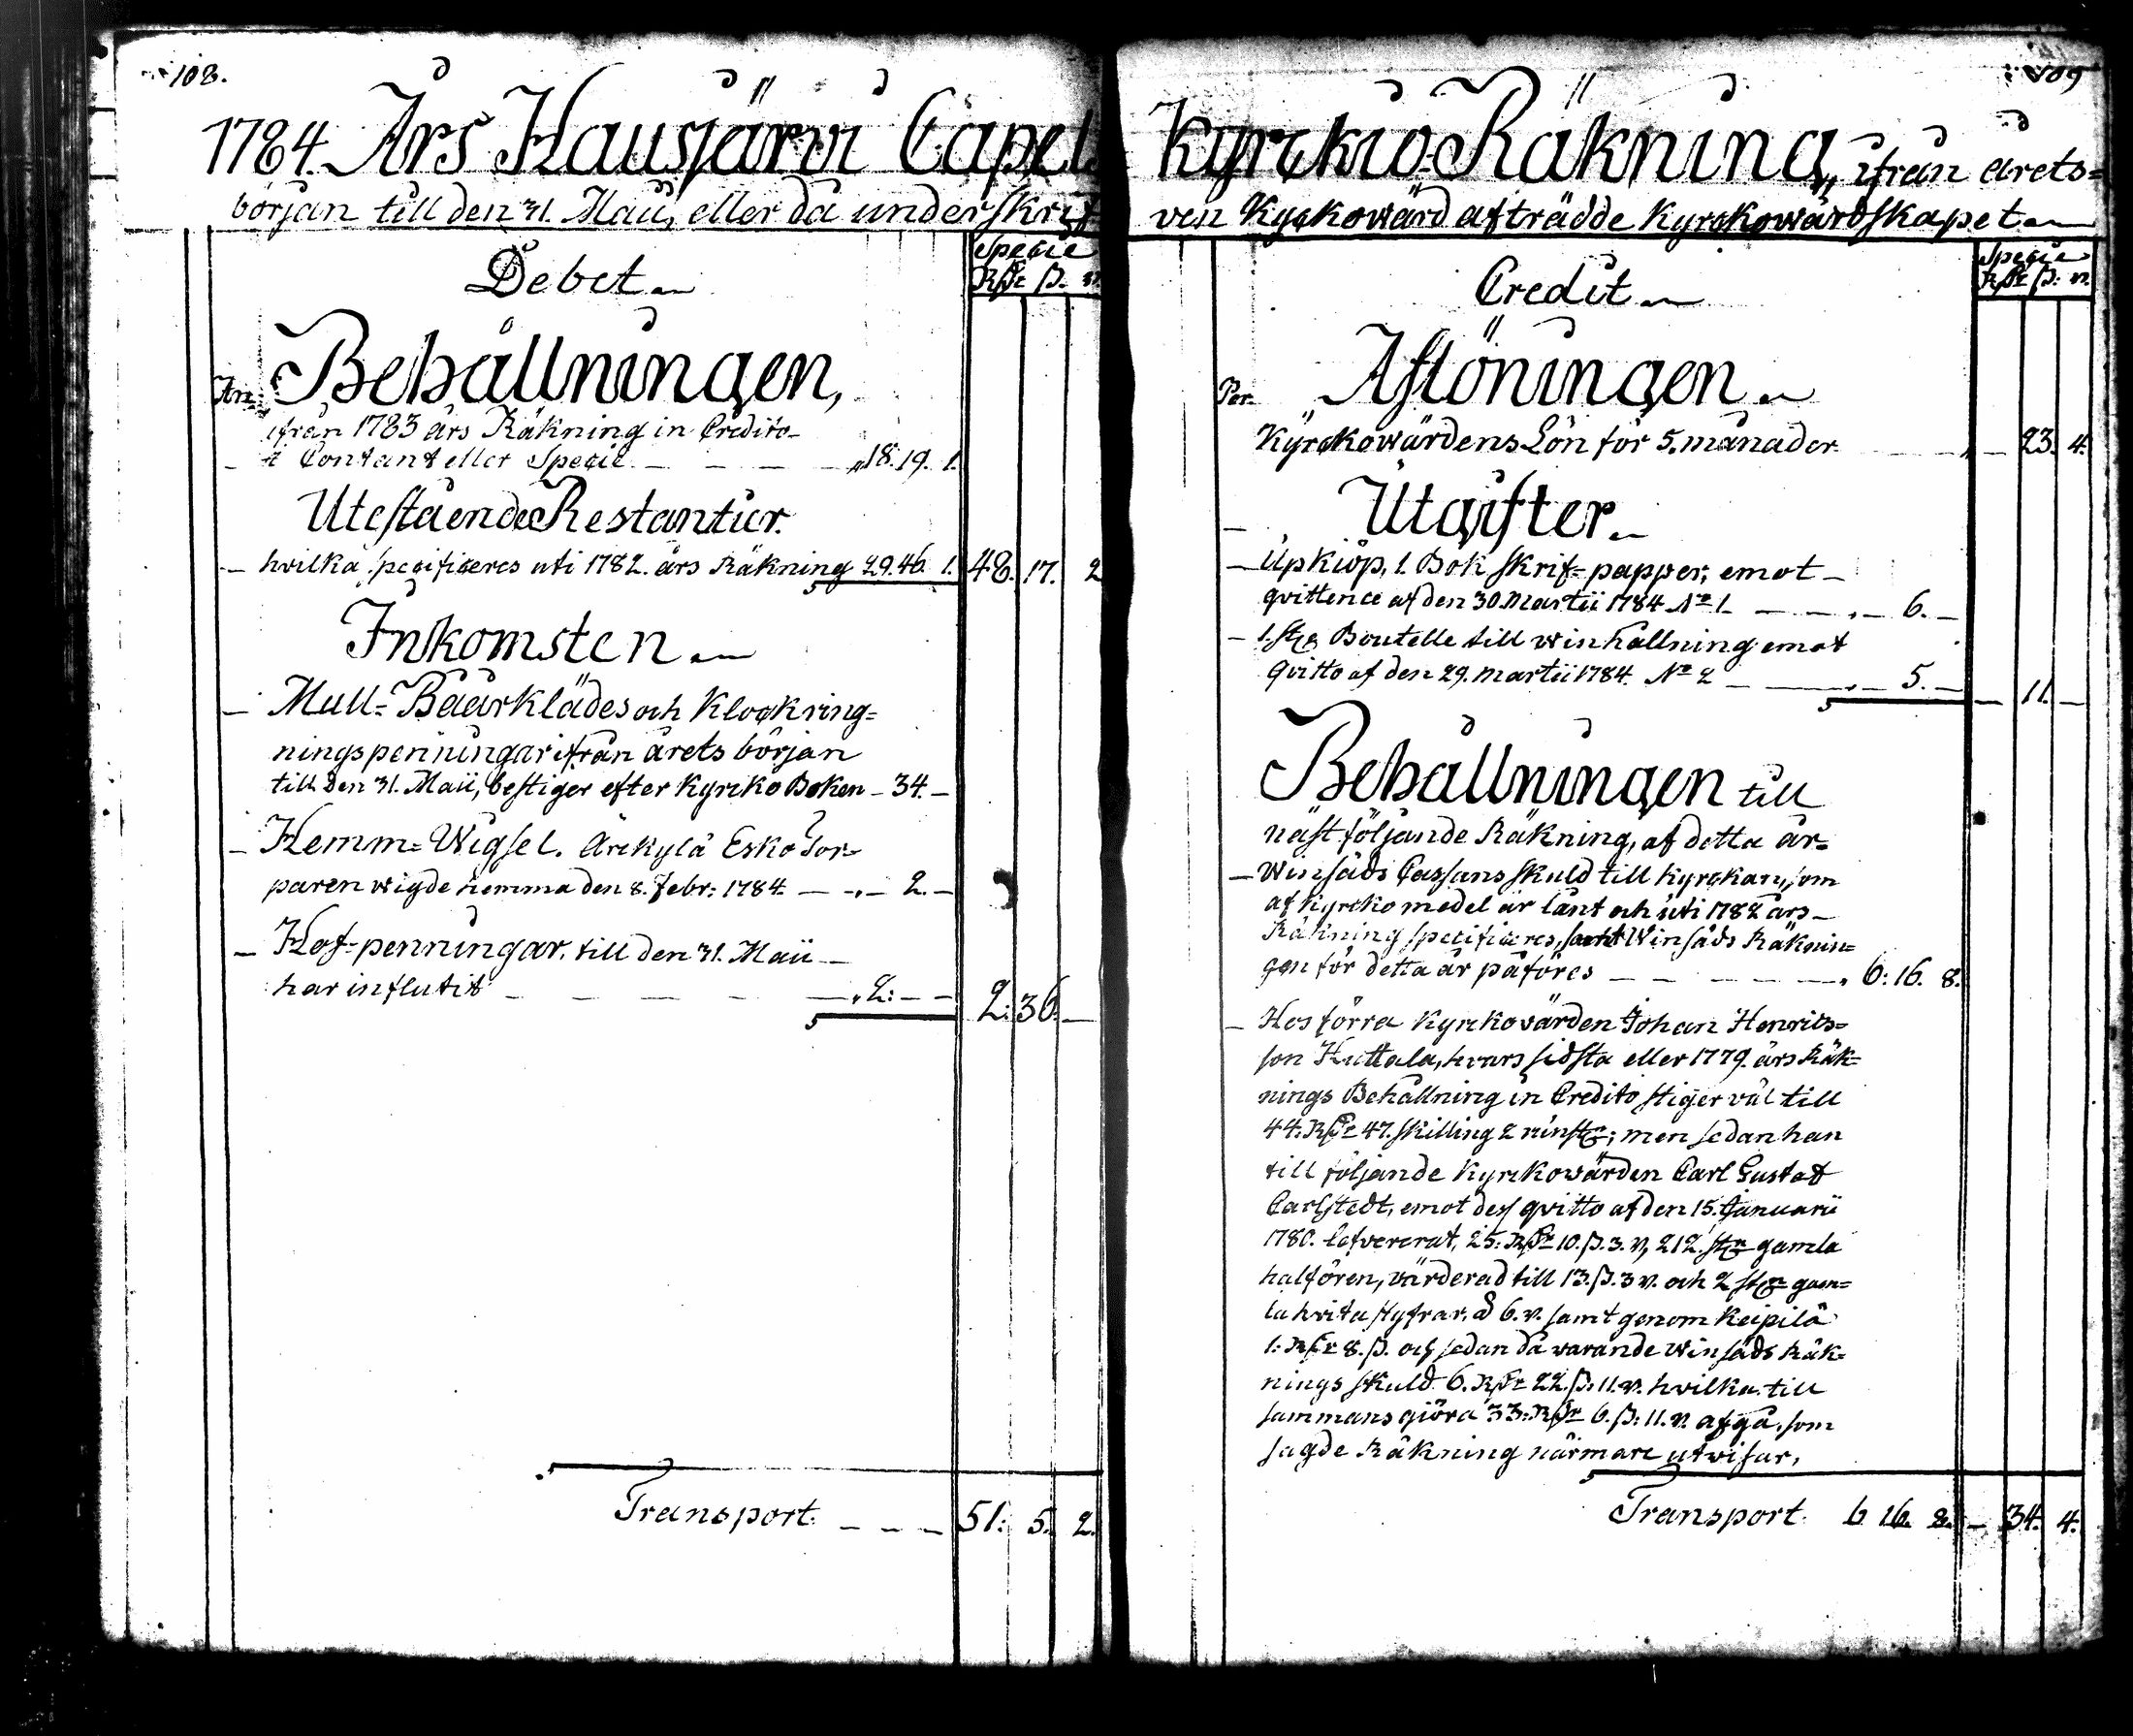 108.
1784. Års Hausjärvi Capels
början till den 31. Maii, eller då underskrif
Debet
Specie
RDr ß. rs
An Behållningen,
ifrån 1783 års Räkning in Credito
i Contant eller Specie - - - - „18. 19. 1.
Utestående Restantier.
- hvilka specificeres uti 1782. års Räkning 29. 46 1. 48. 17. 2
Inkomsten
- Mull- Bäårklädes och Klockring-
ningspenningar ifrån årets början
till den 31. Maii, bestiger efter Kyrcko Boken - 34. -
- Hemm- Wigsel. Arekylä Esko Tor-
paren wigde hemma den 8. Febr: 1784 - - „ - 2. -
- Hof-penningar. till den 31. Maii -
har influtit - - - - - „2: - - 2: 36. -
Transport. - - - 51: 5. 2.
109
Kyrckio-Räkning, ifrån årets=
ven Kyrkowärd afträdde Kyrckowärdskapet
Credit
Specie
RDr ß: rs.
Per. Aflöningen
Kyrckowärdens Lön för 5. månader - - - 23. 4.
Utgifter
- Upkiöp, 1. Bok skrif-papper, emot -
qvittence af den 30. Martii 1784 No 1 - - - „ - 6. -
- 1. st. Boutelle till winhållning emot
qvitto af den 29. Martii 1784. No 2 - - „ - 5. - - 11. -
Behållningen till
näst följande Räkning, af detta är-
- Winsäds Cassans skuld till Kyrckan, som
af Kyrcko medel är lånt och uti 1782 års -
Räkning specificeres, samt Winsäds Räknin-
gen för detta år påföres - - - - - „ 6: 16. 8.
- Hos förra Kyrckovärden Johan Henrics-
son Huttala, hvars sidsta eller 1779. års Räk-
nings Behållning in Credito stiger väl till
44: RDr 47. skilling 2 runst.; men sedan han
till följande Kyrckowärden Carl Gustaf
Carlstedt, emot dess qvitto af den 15. Januarii
1780. lefvererat, 25: RDr 10. ß. 3. r, 212. st. gamla
halfören, värderad till 13. ß. 3 r. och 2 st. gam-
la hvita styfrar. à 6. r. samt genom Keipilä
1: RDr 8. ß. och sedan då warande Winsäds Räk-
nings skuld 6. RDr 22. ß. 11. r. hvilka till
sammans giöra 33: RDr 6. ß: 11. r. afgå, som
sagde Räkning närmare utvisar,
Transport. 6 16. 8. - 34. 4.